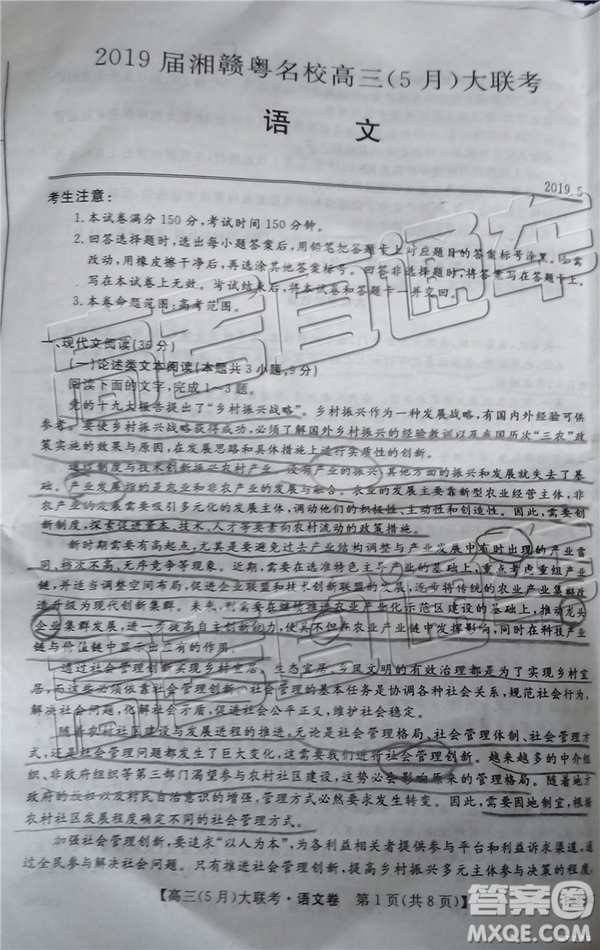 2019届湘赣粤名校高三(5月)大联考
语 文
2019.5
考生注意:
1.本试卷满分150分,考试时间150分钟。
2.回答选择题时,选出每小题答案后,用铅笔把答题卡上对应题目的答案标号涂黑,如需
改动,用橡皮擦干净后,再选涂其他答案标号。回答非选择题时,将答案写在答题卡上,
写在本试卷上无效。考试结束后,将本试卷和答题卡一并交回。
3.本卷命题范围:高考范围。
一、现代文阅读(36分)
(一)论述类文本阅读(本题共3小题,9分)
阅读下面的文字,完成1~3题。
党的十九大报告提出了“乡村振兴战略”。乡村振兴作为一种发展战略,有国内外经验可供
参考。要使乡村振兴战略获得成功,必须了解国外乡村振兴的经验教训以及我国历次“三农”政
策实施的效果与原因,在发展思路和具体措施上进行实质性的创新。
通过制度与技术创新振兴农村产业。没有产业的振兴,其他方面的振兴和发展就失去了基
础。产业发展指的是农业和非农产业的发展与融合。农业的发展主要靠新型农业经营主体,非
农产业的发展需要吸引多元化的发展主体,调动他们的积极性、主动性和创造性。因此,需要创
新制度,探索促进资本、技术、人才等要素向农村流动的政策措施。
新时期需要有高起点,尤其是要避免过去产业结构调整与产业发展中有时出现的产业雷
同、档次不高、无序竞争等现象。近期,需要在选准特色主导产业的基础上,重点考虑重组产业
链,并适当调整空间布局,促进企业联盟和技术创新联盟的发展,逐步将传统的农业产业集群改
造升级为现代创新集群。未来,则需要在继续推进农业产业化示范区建设的基础上,推动龙头
企业集群发展,由此提高自主创新能力,使其不但在农业产业链中发挥影响,同时在科技产业
链与价值链中显示出三有的作用。
通过社会管理创新实现乡村宜居。生态宜居、乡风文明的有效治理都是为了实现乡村宜
居,而这些必须依靠社会管理创新。社会管理的基本任务是协调各种社会关系,规范社会行为,
解决社会问题,化解社会矛盾,促进社会公平正义,维护社会稳定。
随着农村社区建设与发展进程的推进,无论是社会管理格局、社会管理体制、社会管理方
式,还是社会管理问题都发生了巨大变化,这需要我们进行社会管理创新。越来越多的中介组
织、非政府组织等第三部门渴望参与农村社区建设,这势必会影响原来的管理格局。随着地方
政府的放权以及村民自治意识的增强,管理方式必然要求发生转变。因此,需要因地制宜,根据
农村社区发展程度确定不同的社会管理方式。
加强社会管理创新,要追求“以人为本”,为各利益相关者提供参与平台和利益诉求渠道,通
过全民参与解决社会问题。只有推进社会管理创新,提高乡村振兴多元主体参与发展的程度,
【高三(5月)大联考·语文卷 第1页(共8页)】
答案圈
MXQE.COM